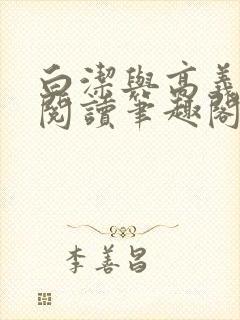 白潔與高義
閱讀筆趣閣
李善昌